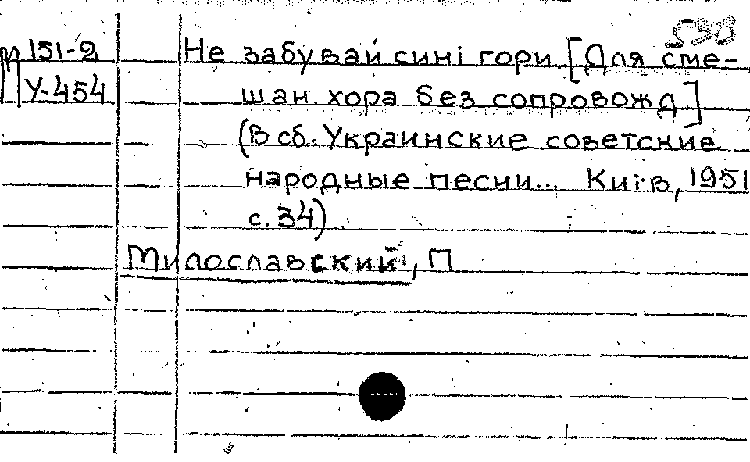 593
П 151-2 Не забувай синi гори [Для сме-
У-454 шан. хора без сопровожд.]
(В сб. Украинские советские
народные песни... Київ, 1951
с. 34)
Милославский, П